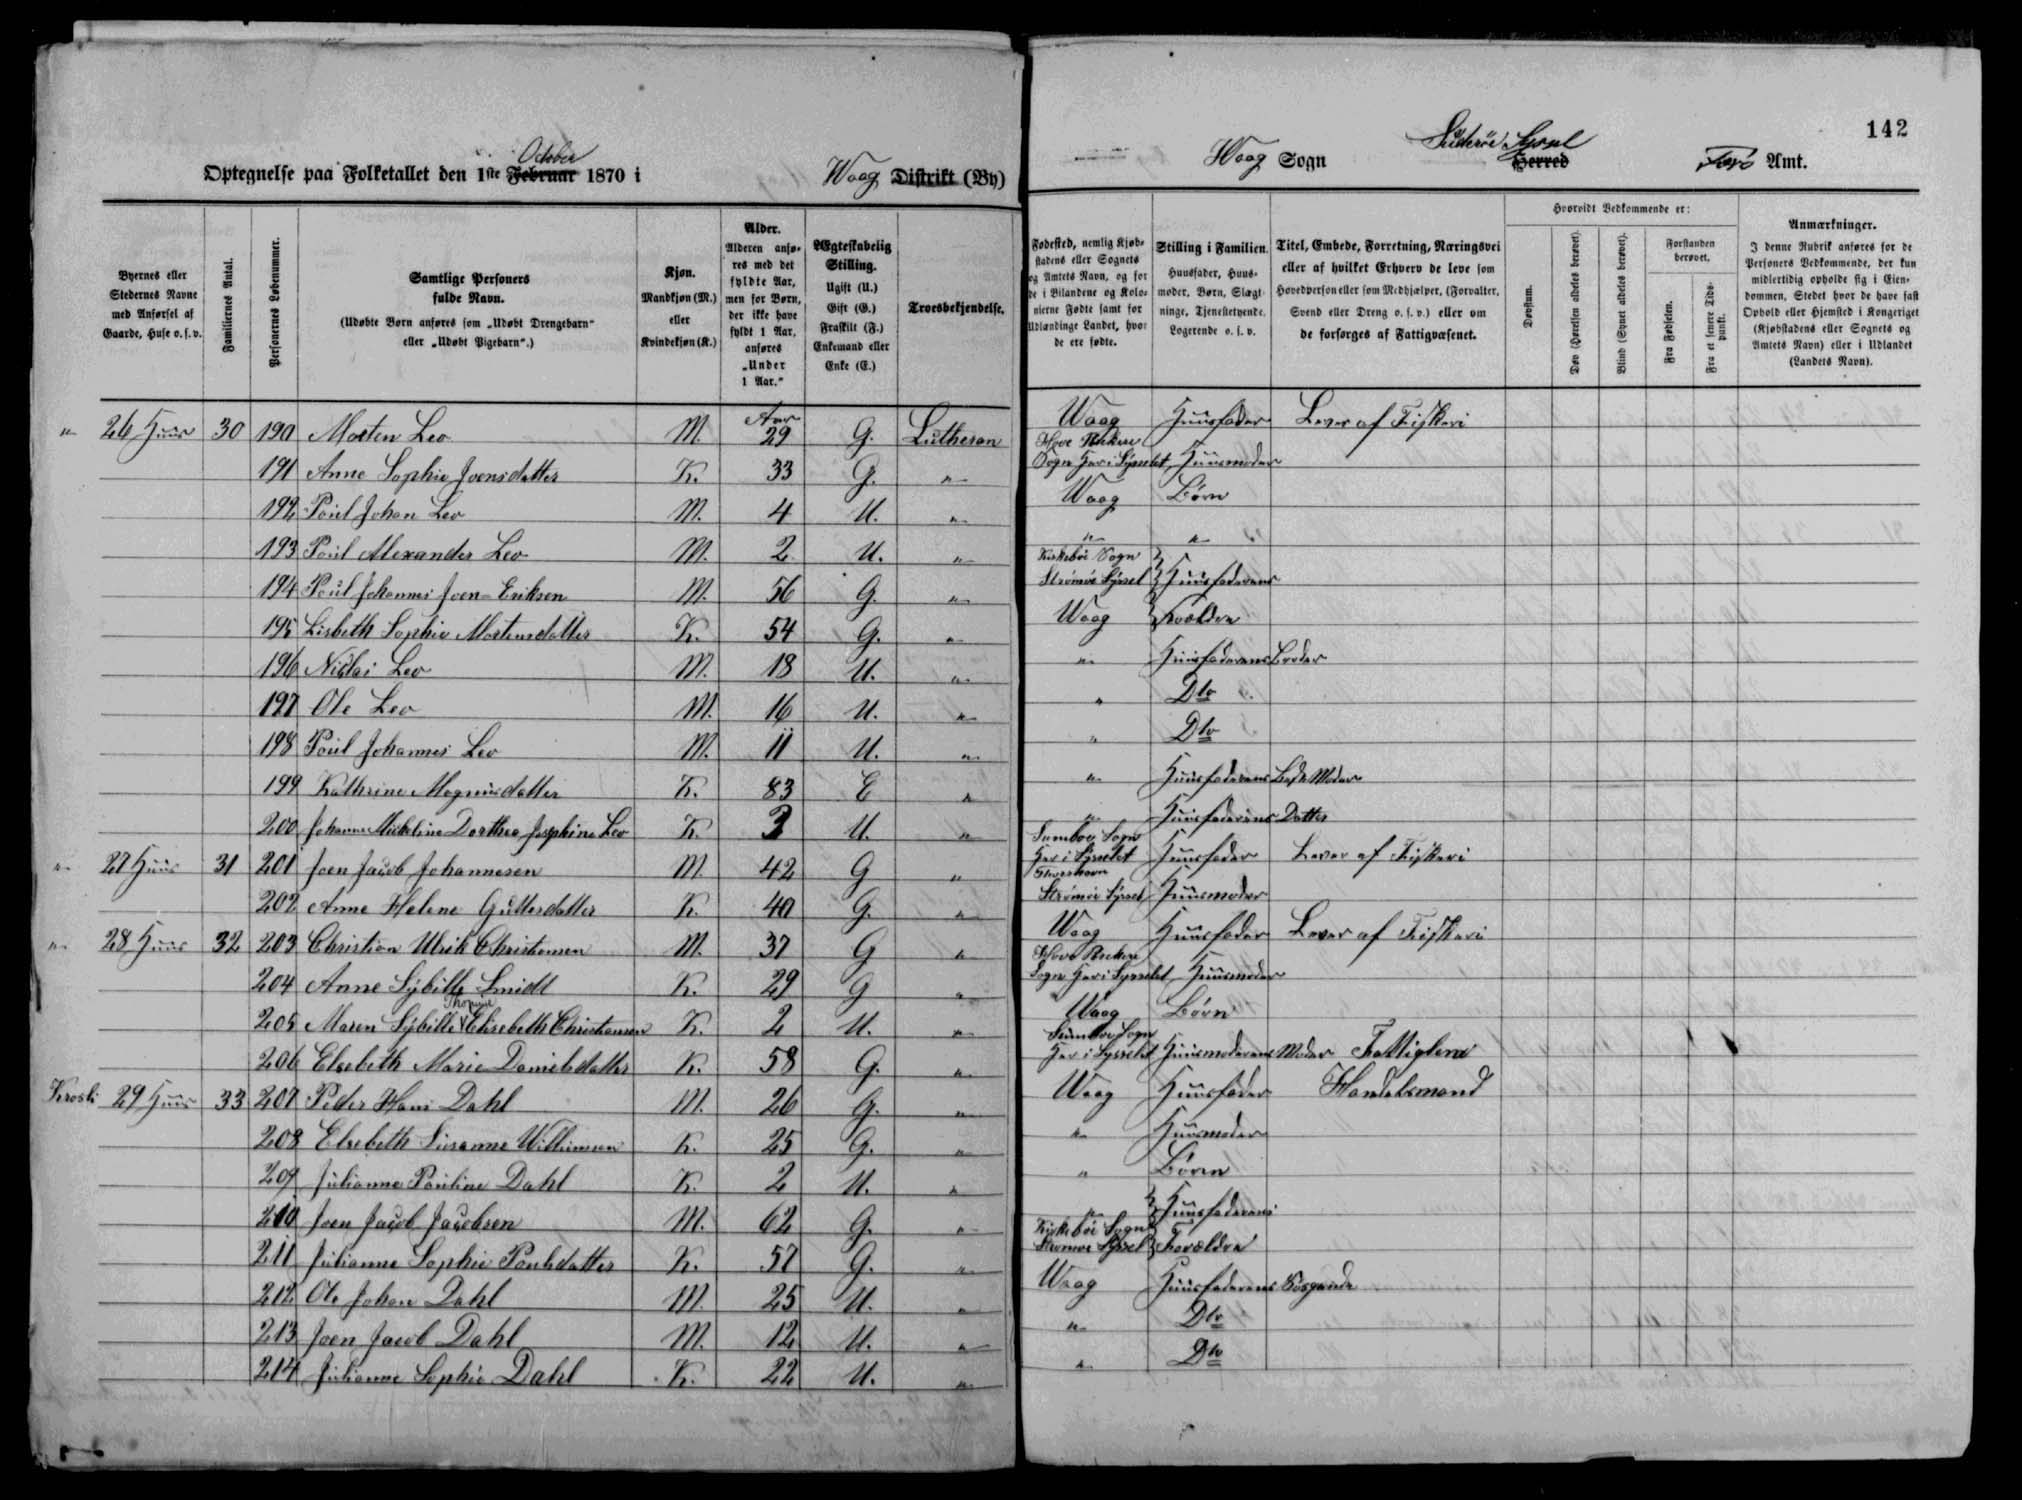 142
Optegnelse paa Folketallet den 1ste Februar October 1870 i Waag Distrikt (By)
Waag Sogn Suderöe Syssel Herred Færö Amt.
Byernes eller Stedernes Navne med Anførsel af Gaarde, Huse o.s.v.
Familiernes Antal.
Personernes Løbenummer.
Samtlige Personers fulde Navn.
(Udøbte Børn anføres som „Udøbt Drengebarn“ eller „Udøbt Pigebarn“.)
Kjøn.
Mandkjøn (M.) eller Kvindekjøn (K.)
Alder.
Alderen anføres med det fyldte Aar, men for Børn, der ikke have fyldt 1 Aar, anføres „Under 1 Aar.“
Ægteskabelig Stilling.
Ugift (U.) Gift (G.) Fraskilt (F.) Enkemand eller Enke (E.)
Troesbekjendelse.
Fødested, nemlig Kjøbstadens eller Sognets og Amtets Navn, og for de i Bilandene og Kolonierne Fødte samt for Udlændinge Landet, hvor de ere fødte.
Stilling i Familien.
Huusfader, Huusmoder, Børn, Slægtninge, Tjenestetyende, Logerende o.s.v.
Titel, Embede, Forretning, Næringsvei eller af hvilket Erhverv de leve som Hovedperson eller som Medhjælper, (Forvalter, Svend eller Dreng o.s.v.) eller om de forsørges af Fattigvæsenet.
Hvorvidt Vedkommende er:
Døvstum.
Døv (Hørelsen aldeles berøvet).
Blind (Synet aldeles berøvet).
Forstanden berøvet.
Fra Fødselen.
Fra et senere Tidspunkt.
Anmærkninger.
I denne Rubrik anføres for de Personers Vedkommende, der kun midlertidig opholde sig i Eiendommen, Stedet hvor de have fast Ophold eller Hjemsted i Kongeriget (Kjøbstadens eller Sognets og Amtets Navn) eller i Udlandet (Landets Navn).
" 26 Huus 30 190 Morten Leo M. Aar 29 G. Lutheran Waag Huusfader Lever af Fiskeri
191 Anne Sophie Joensdatter K. 33 G. " Hove Sogn her i Sysselet Huusmoder
192 Poul Johan Leo M. 4 U. " Waag Børn
193 Poul Alexander Leo M. 2 U. " " "
194 Poul Johannes Joen-Eriksen M. 56 G. " Kirkeböe Sogn Strömöe Syssel Huusfaderens
195 Lisbeth Sophie Mortensdatter K. 54 G. " Waag Forældre
196 Niclai Leo M. 18 U. " " Huusfaderens Broder
197 Ole Leo M. 16 U. " " Dto
198 Poul Johannes Leo M. 11 U. " " Dto
199 Kathrine Magnusdatter K. 83 E " " Huusfaderens Moder
200 Johanne Micheline Dorthea Josephine Leo K. 3 U. " " Huusfaderens Datter
" 27 Huus 31 201 Joen Jacob Johannesen M. 42 G " Sumboe Sogn her i Sysselet Huusfader Lever af Fiskeri
202 Anne Helene Guttesdatter K. 40 G. " Thorshavn Strömöe Syssel Huusmoder
" 28 Huus 32 203 Christian Ulrik Christiansen M. 37 G " Waag Huusfader Lever af Fiskeri
204 Anne Sybille Smidt K. 29 G " Hove Sogn her i Sysselet Huusmoder
205 Maren Sybille Thomine Elisebeth Christiansen K. 2 U. " Waag Børn
206 Elsebeth Marie Danielsdatter K. 58 G. " Sumboe Sogn her i Sysselet Huusmoderens Moder Fattiglem
29 Huus 33 207 Peder Hans Dahl M. 26 G. " Waag Huusfader Handelsmand
208 Elsebeth Susanne Willumsen K. 25 G. " " Huusmoder
209 Julianne Pauline Dahl K. 2 U. " " Børn
210 Joen Jacob Jacobsen M. 62 G. " " Huusfaderens
211 Julianne Sophie Poulsdatter K. 57 G. " Kirkeböe Sogn Strömöe Syssel Forældre
212 Ole Johan Dahl M. 25 U. " Waag Huusfaderens Søskende
213 Joen Jacob Dahl M. 12 U. " " Dto
214 Julianne Sophie Dahl K. 22 U. " " Dto